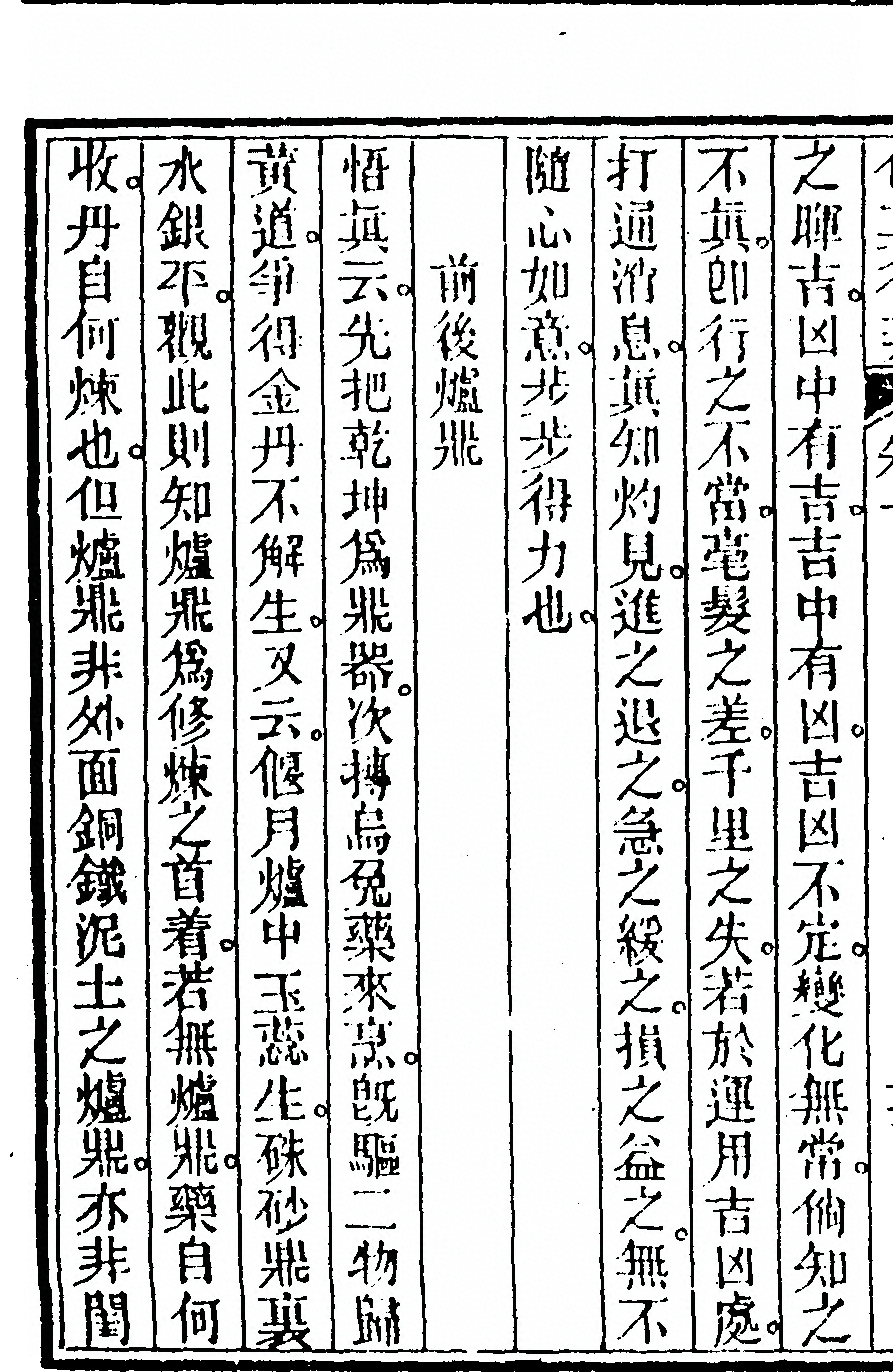 之暉吉。凶中有吉。吉中有凶。吉凶不定。變化無常。倘知之
不真。卽行之不當。毫髮之差。千里之失。若於運用吉凶處。
打通消息。真知灼見。進之退之。急之緩之。損之益之。無不
隨心如意。步步得力也。
前後爐鼎
悟真云。先把乾坤爲鼎器。次搏烏兔藥來烹。旣驅二物歸
黄道。爭得金丹不解生。又云。偃月爐中玉蕊生。硃砂鼎裏
水銀平。觀此則知爐鼎爲修煉之首着。若無爐鼎。藥自何
收。丹自何煉也。但爐鼎非外面銅鐵泥土之爐鼎。亦非閨